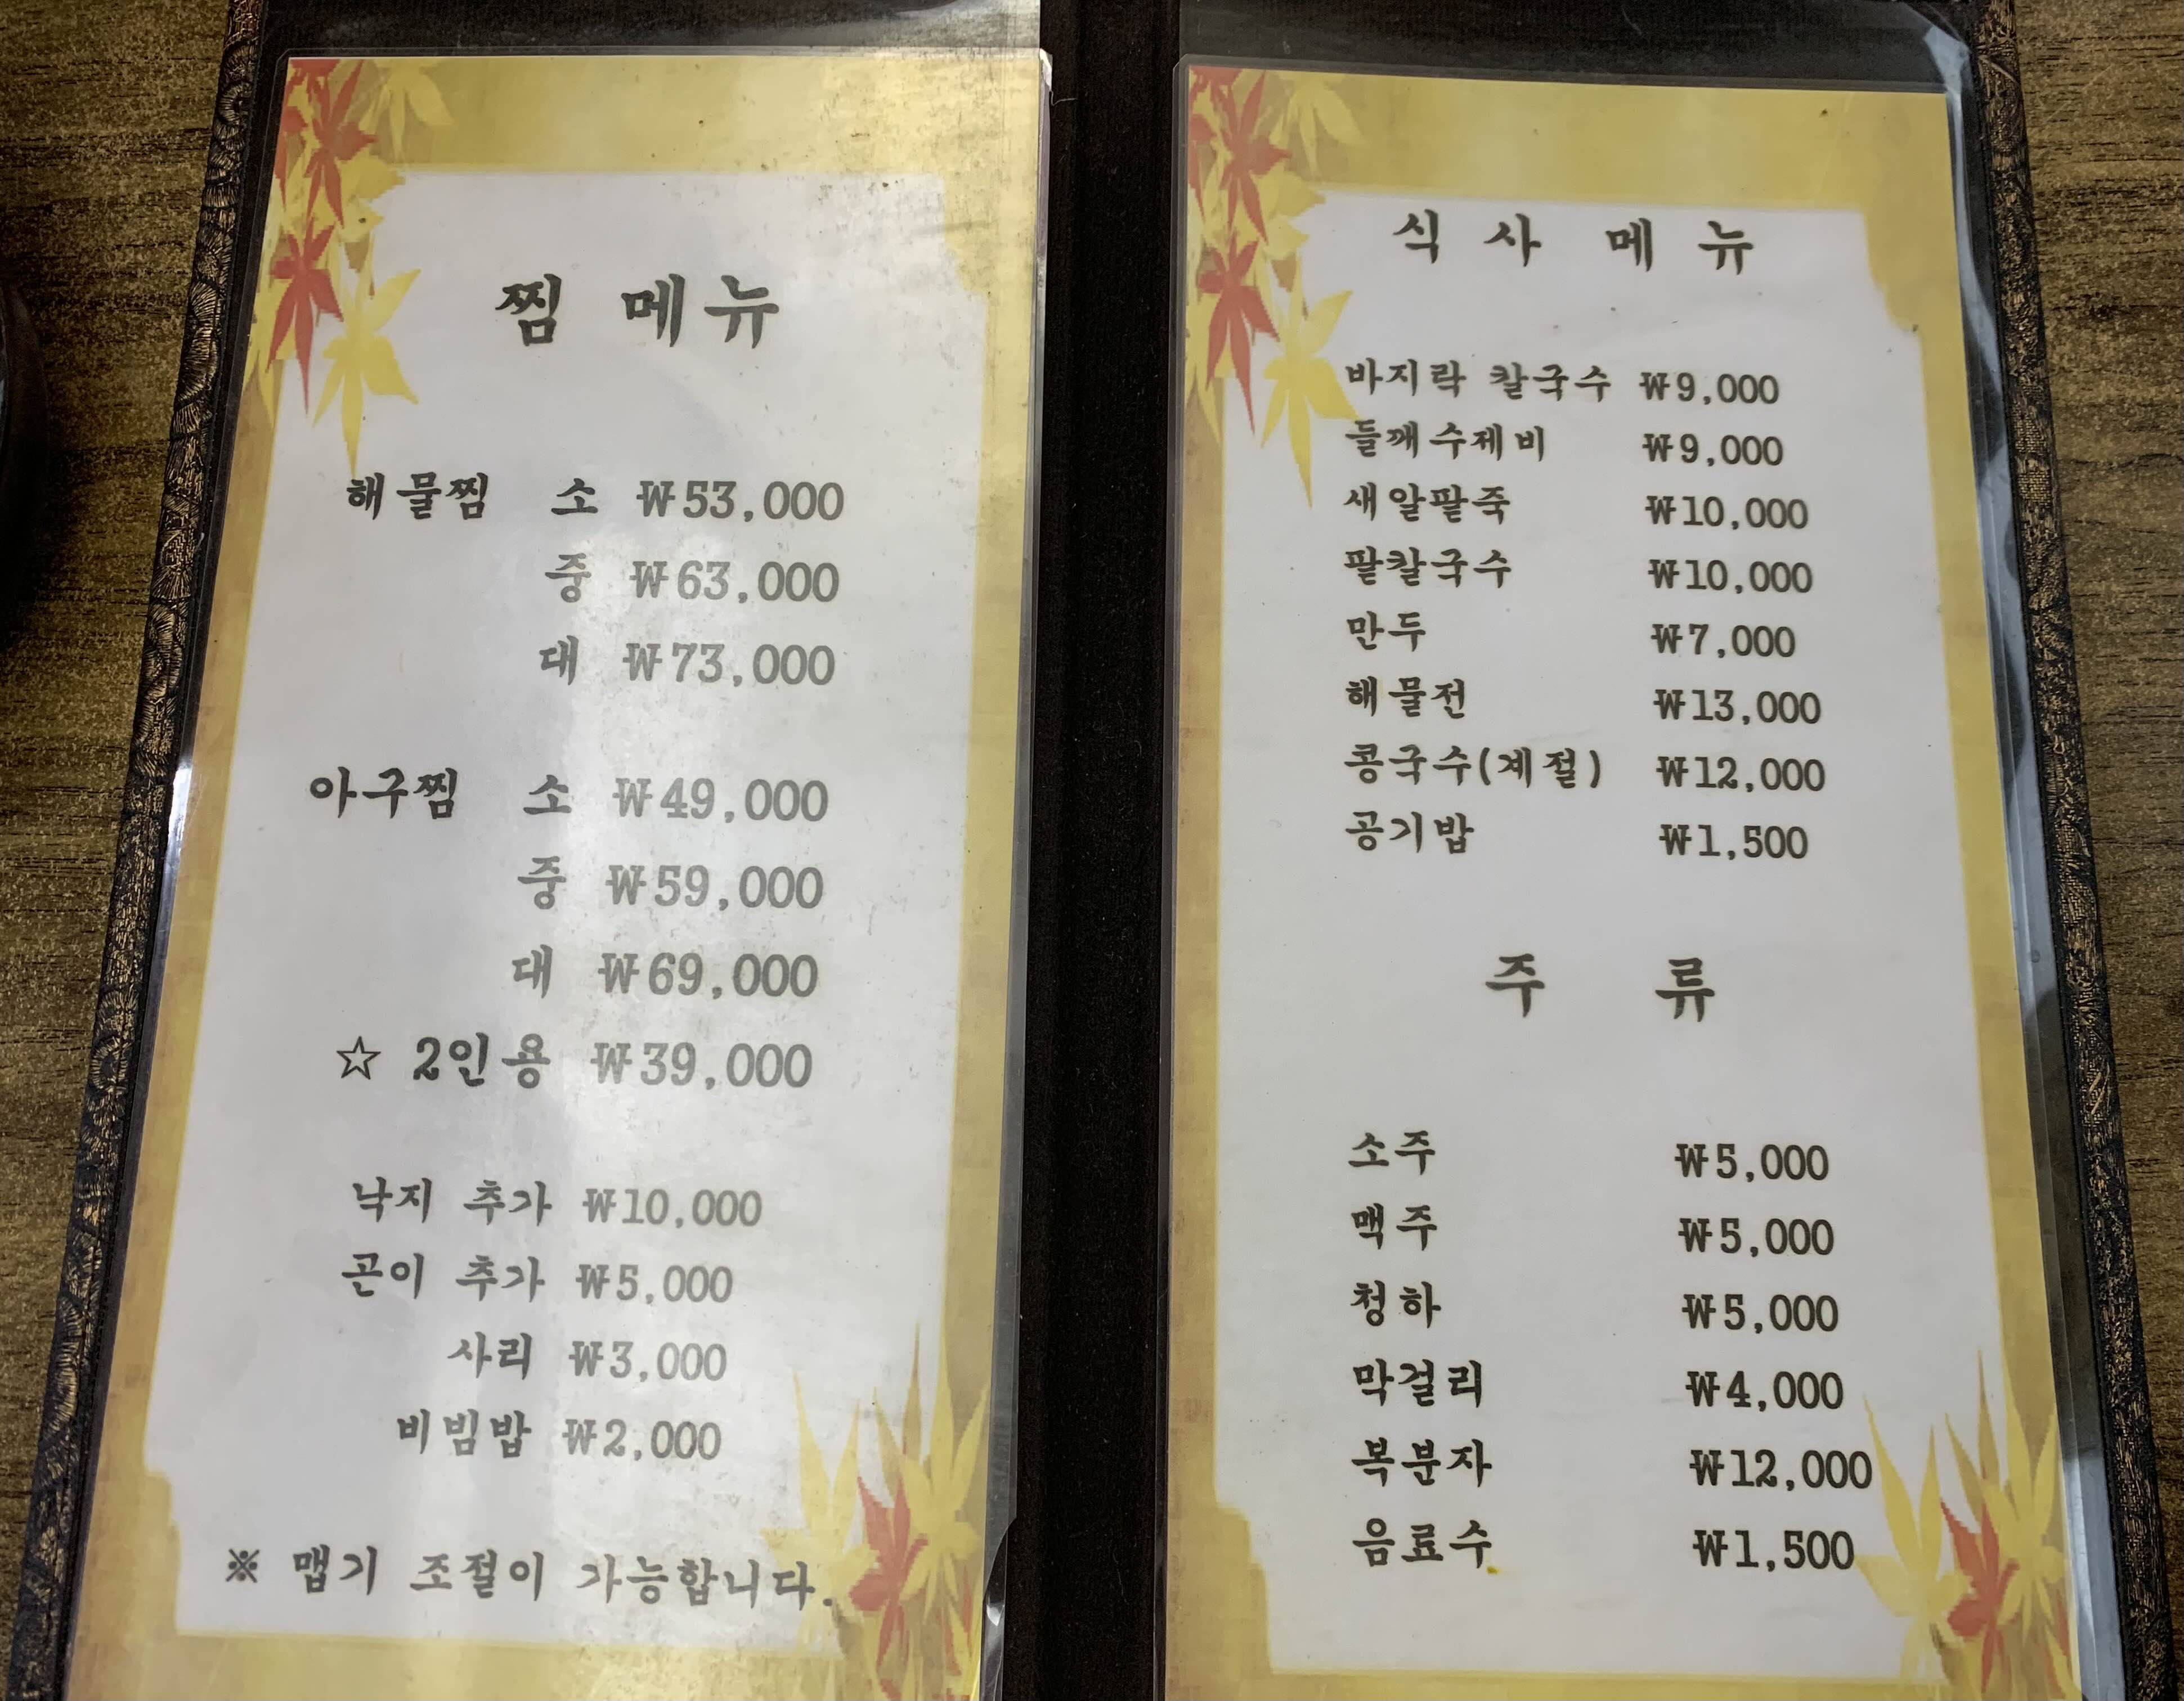 찜 메뉴
해물찜 소 ₩53,000
중 ₩63,000
대 ₩73,000
아구찜 소 ₩49,000
중 ₩59,000
대 ₩69,000
☆ 2인용 ₩39,000
낙지 추가 ₩10,000
곤이 추가 ₩5,000
사리 ₩3,000
비빔밥 ₩2,000
※ 맵기 조절이 가능합니다.
식사 메뉴
바지락 칼국수 ₩9,000
들깨수제비 ₩9,000
새알팥죽 ₩10,000
팥칼국수 ₩10,000
만두 ₩7,000
해물전 ₩13,000
콩국수(계절) ₩12,000
공기밥 ₩1,500
주 류
소주 ₩5,000
맥주 ₩5,000
청하 ₩5,000
막걸리 ₩4,000
복분자 ₩12,000
음료수 ₩1,500